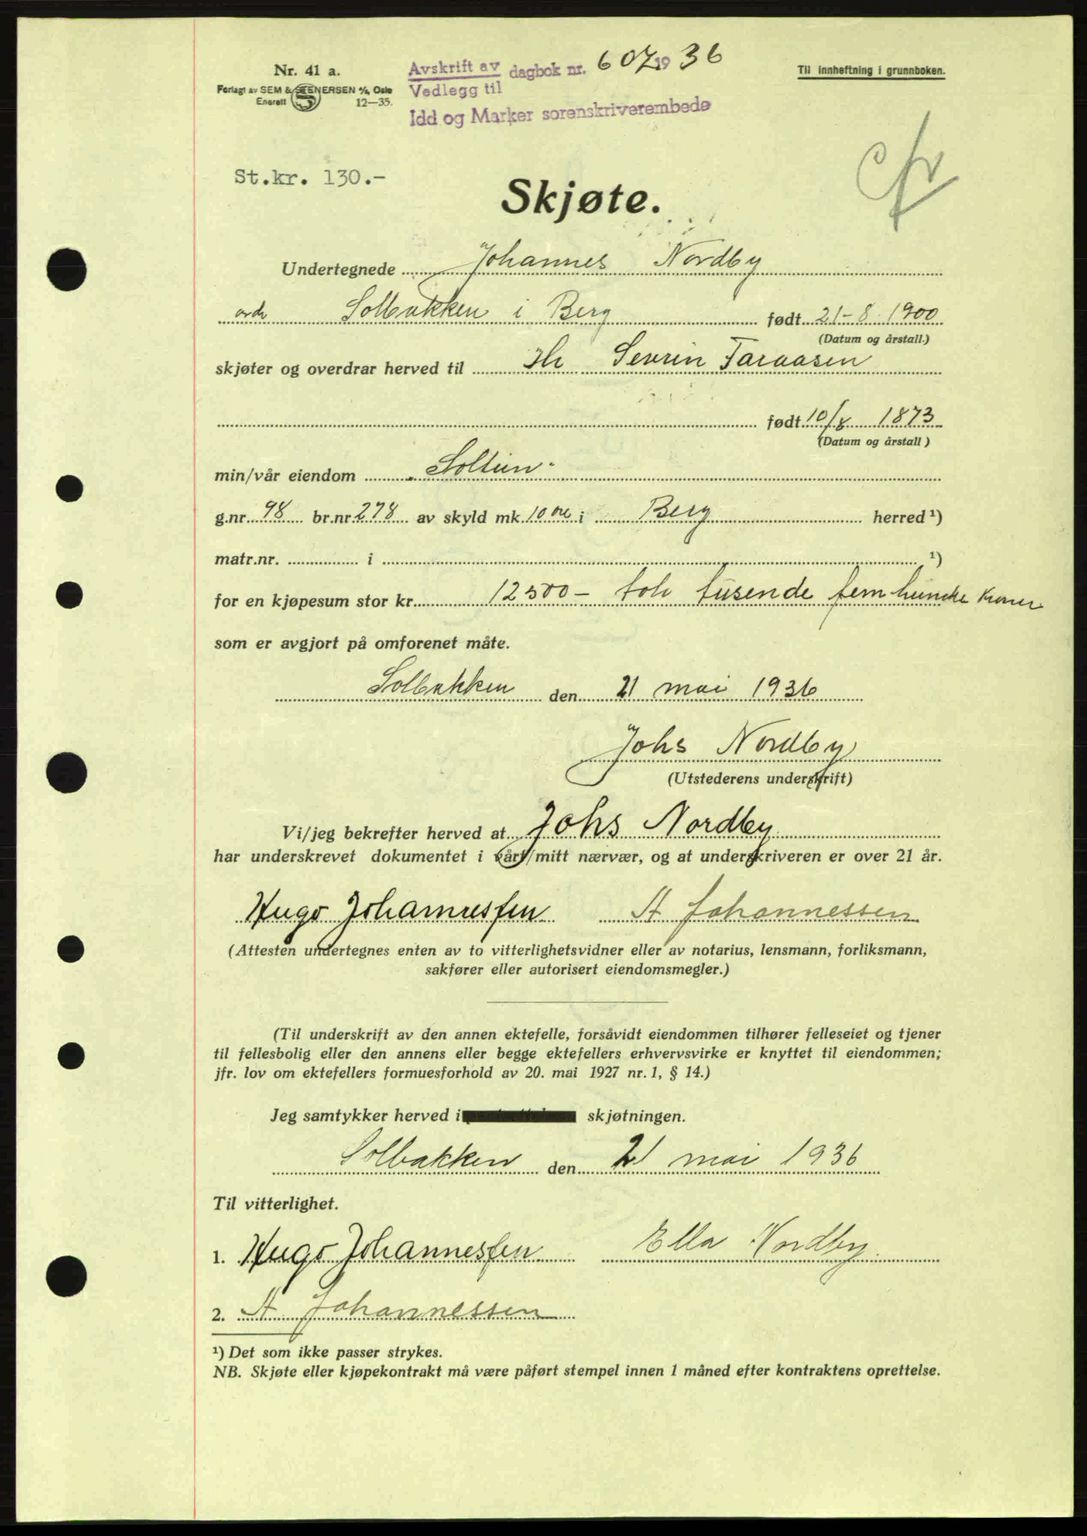 Nr. 41 a.
Forlagt av SEM & STENERSEN A/S, Oslo
Enerett 12—35.
Avskrift av dagbok nr. 607 1936
Vedlegg til
Idd og Marker sorenskriverembede
Til innheftning i grunnboken.
St.kr. 130.-
Skjøte.
Undertegnede Johannes Nordby
Solbakken i Berg født 21-8 1900
(Datum og årstall.)
skjøter og overdrar herved til Hr Sevrin Taraasen
født 10/8 1873
(Datum og årstall)
min/vår eiendom "Soltun"
g.nr. 98 br.nr. 278 av skyld mk. 10 øre i Berg herred ¹)
matr.nr. i ¹)
for en kjøpesum stor kr. 12500 - tolv tusende fem hundre kroner
som er avgjort på omforenet måte.
Solbakken den 21 mai 1936
Johs Nordby
(Utstederens underskrift)
Vi/jeg bekrefter herved at Johs Nordby
har underskrevet dokumentet i vårt/mitt nærvær, og at underskriveren er over 21 år.
Hugo Johannessen A Johannessen
(Attesten undertegnes enten av to vitterlighetsvidner eller av notarius, lensmann, forliksmann,
sakfører eller autorisert eiendomsmegler.)
(Til underskrift av den annen ektefelle, forsåvidt eiendommen tilhører felleseiet og tjener
til fellesbolig eller den annens eller begge ektefellers erhvervsvirke er knyttet til eiendommen;
jfr. lov om ektefellers formuesforhold av 20. mai 1927 nr. 1, § 14.)
Jeg samtykker herved i skjøtningen.
Solbakken den 21 mai 1936
Til vitterlighet.
1. Hugo Johannessen Ella Nordby.
2. A Johannessen
¹) Det som ikke passer strykes.
NB. Skjøte eller kjøpekontrakt må være påført stempel innen 1 måned efter kontraktens oprettelse.